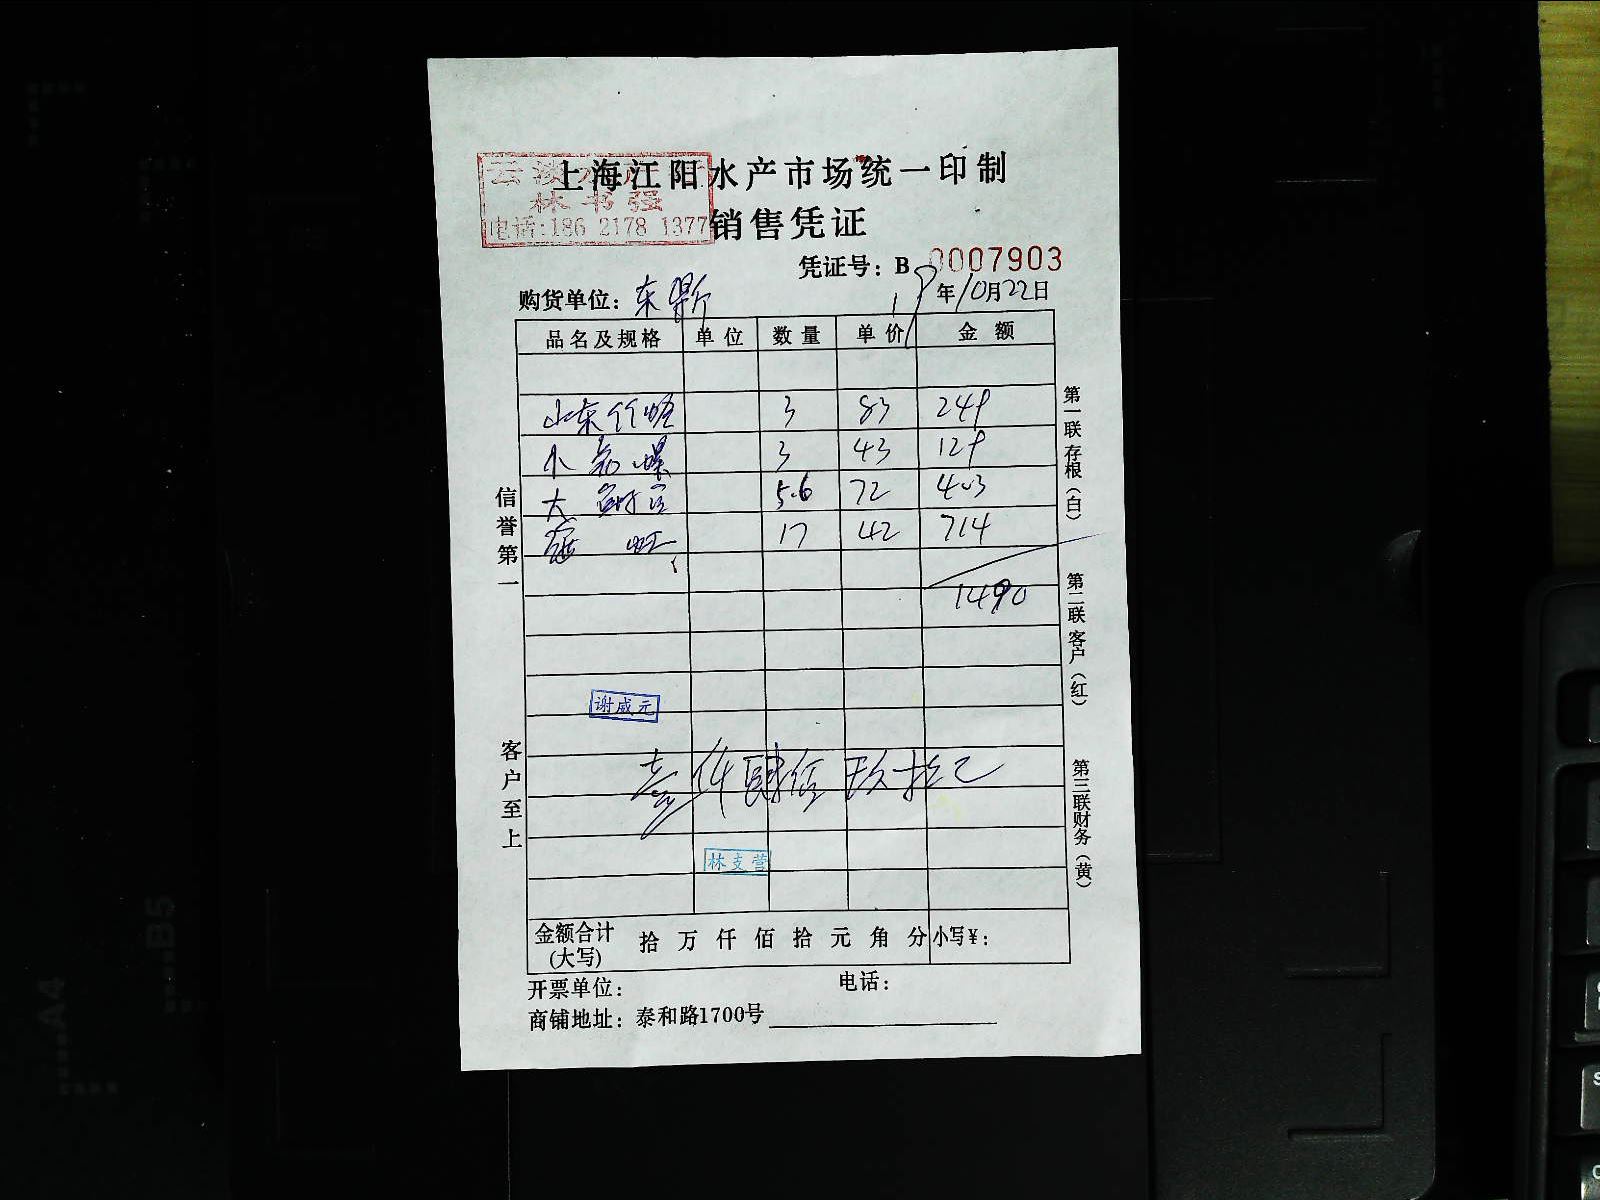 上海江阳水产市场统一印制
林书强
电话:186 2178 1377
销售凭证
凭证号：B 0007903
购货单位：东鼎
19年10月22日
品名及规格 单位 数量 单价 金额
山东竹蛏 3 83 249
小 螺 3 43 129
大 5.6 72 403
17 42 714
1490
信誉第一
客户至上
第一联存根（白）
第二联客户（红）
第三联财务（黄）
谢威元
壹仟肆佰玖拾元
林支营
金额合计(大写) 拾 万 仟 佰 拾 元 角 分 小写¥：
开票单位： 电话：
商铺地址：泰和路1700号